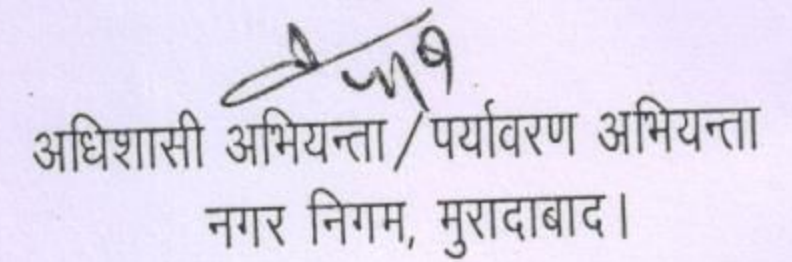 अधिशासी अभियन्ता/पर्यावरण अभियन्ता
नगर निगम, मुरादाबाद।